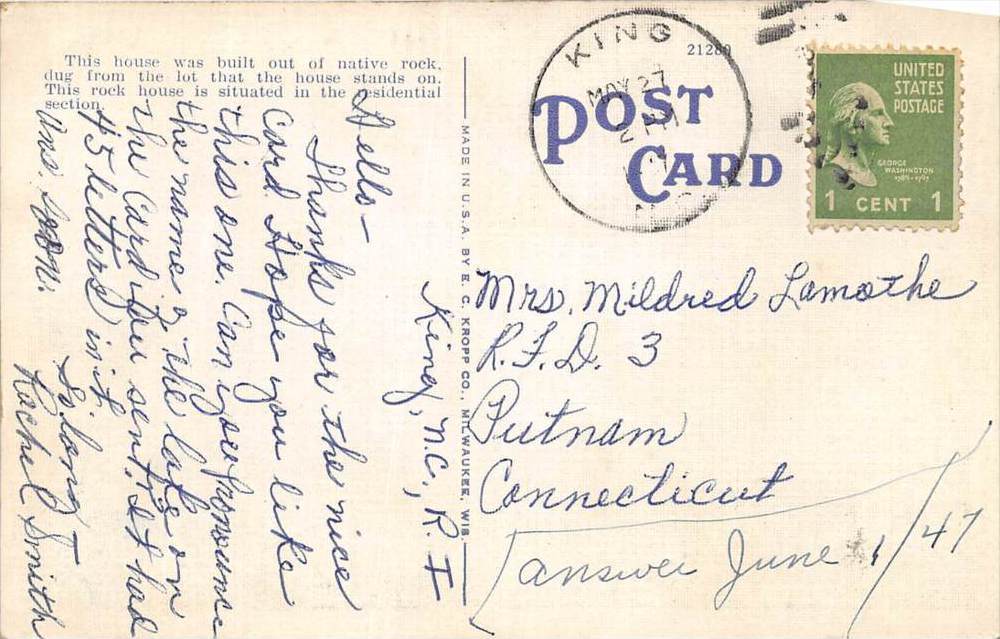 This house was built out of native rock,
dug from the lot that the house stands on.
This rock house is situated in the residential
section.
King, N.C., R. I
Hello –
Thanks for the nice
card. Hope you like
this one. Can you pronounce
the name of the lake on
the card you sent. It had
45 letters in it
Ans. soon.
So long
Rachel Smith
MADE IN U.S.A. BY E. C. KROPP CO., MILWAUKEE, WIS.
21280
POST
CARD
KING
MAY 27
PM
N.C.
UNITED
STATES
POSTAGE
GEORGE
WASHINGTON
1789-1797
1 CENT 1
Mrs. Mildred Lamothe
R.F.D. 3
Putnam
Connecticut
answer June 1/47